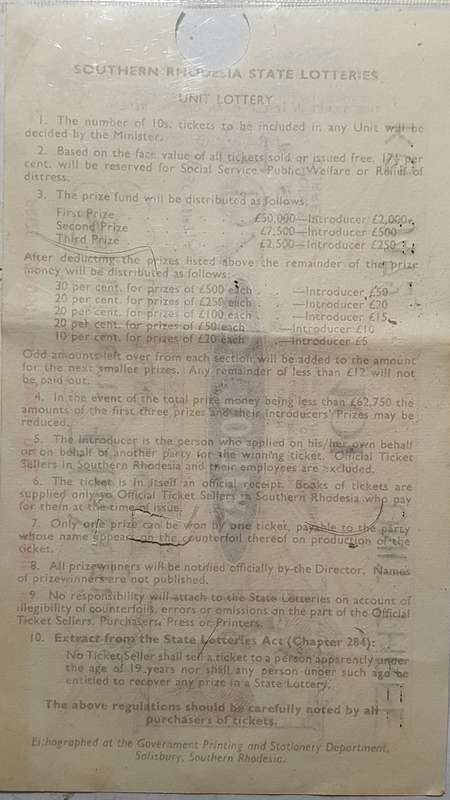 SOUTHERN RHODESIA STATE LOTTERIES
UNIT LOTTERY
1. The number of 10s. tickets to be included in any Unit will be
decided by the Minister.
2. Based on the face value of all tickets sold or issued free, 17½ per
cent. will be reserved for Social Service, Public Welfare or Relief of
distress.
3. The prize fund will be distributed as follows:
First Prize £50,000—Introducer £2,000
Second Prize £7,500—Introducer £500
Third Prize £2,500—Introducer £250
After deducting the prizes listed above the remainder of the prize
money will be distributed as follows:
30 per cent. for prizes of £500 each —Introducer £50
20 per cent. for prizes of £250 each —Introducer £20
20 per cent. for prizes of £100 each —Introducer £15
20 per cent. for prizes of £50 each —Introducer £10
10 per cent. for prizes of £20 each —Introducer £5
Odd amounts left over from each section will be added to the amount
for the next smaller prizes. Any remainder of less than £12 will not
be paid out.
4. In the event of the total prize money being less than £62,750 the
amounts of the first three prizes and their Introducers' Prizes may be
reduced.
5. The Introducer is the person who applied on his/her own behalf
or on behalf of another party for the winning ticket. Official Ticket
Sellers in Southern Rhodesia and their employees are excluded.
6. The ticket is in itself an official receipt. Books of tickets are
supplied only to Official Ticket Sellers in Southern Rhodesia who pay
for them at the time of issue.
7. Only one prize can be won by one ticket, payable to the party
whose name appears on the counterfoil thereof on production of the
ticket.
8. All prizewinners will be notified officially by the Director. Names
of prizewinners are not published.
9. No responsibility will attach to the State Lotteries on account of
illegibility of counterfoils, errors or omissions on the part of the Official
Ticket Sellers, Purchasers, Press or Printers.
10. Extract from the State Lotteries Act (Chapter 284):
No Ticket Seller shall sell a ticket to a person apparently under
the age of 19 years nor shall any person under such age be
entitled to recover any prize in a State Lottery.
The above regulations should be carefully noted by all
purchasers of tickets.
Lithographed at the Government Printing and Stationery Department,
Salisbury, Southern Rhodesia.